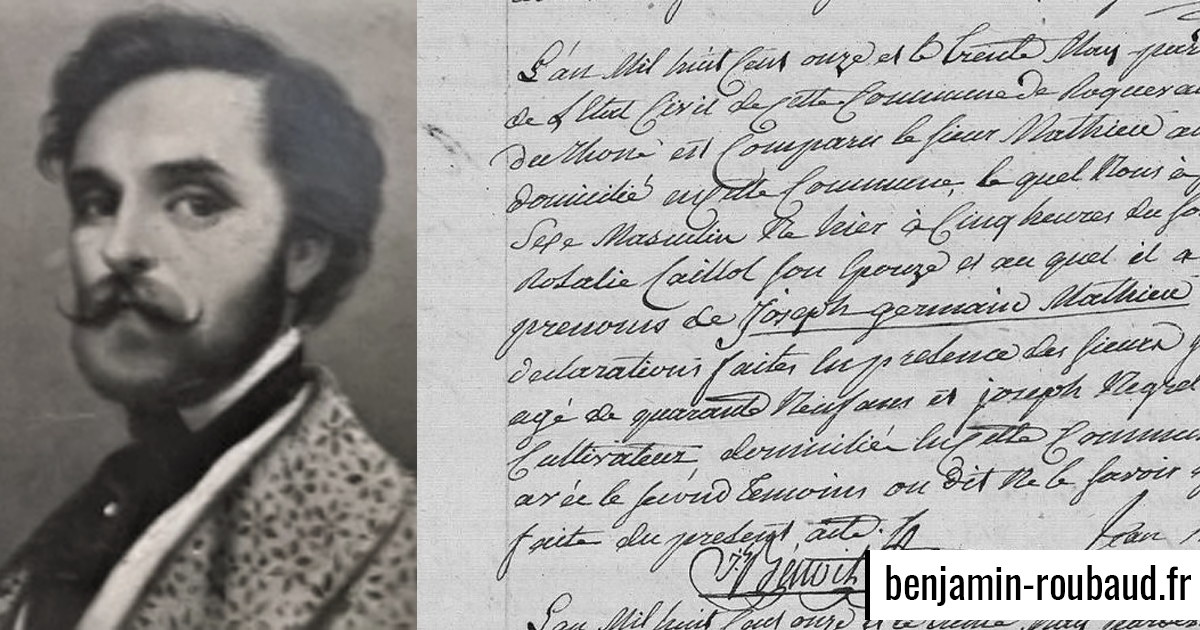 L'an Mil huit Cent onze et le trente May par
de L'Etat Civil de Cette Commune de Roqueva
du Rhone est Comparu le sieur Mathieu
domicilié en Cette Commune, le quel Nous à
Sexe Masculin Né hier à Cinq heures du so
Rosalie Caillol son Epouze et au quel il a
prenoms de Joseph germain Mathieu
declarations faites En presence des sieurs
agé de quarante Neuf ans et joseph Negrel
Cultivateur domicilié En Cette Commu
avec le second temoins on dit Ne le savoir
faite du present acte.
Jean
Benoit
L'an Mil huit Cent onze et le trente May
benjamin-roubaud.fr